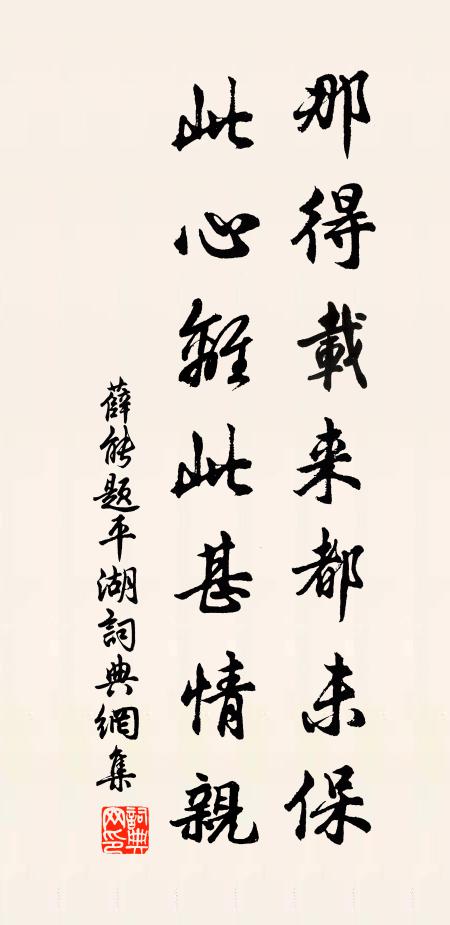 那得載来都未保
此心離此甚情親
薛能題平湖詞典網集
詞典網印